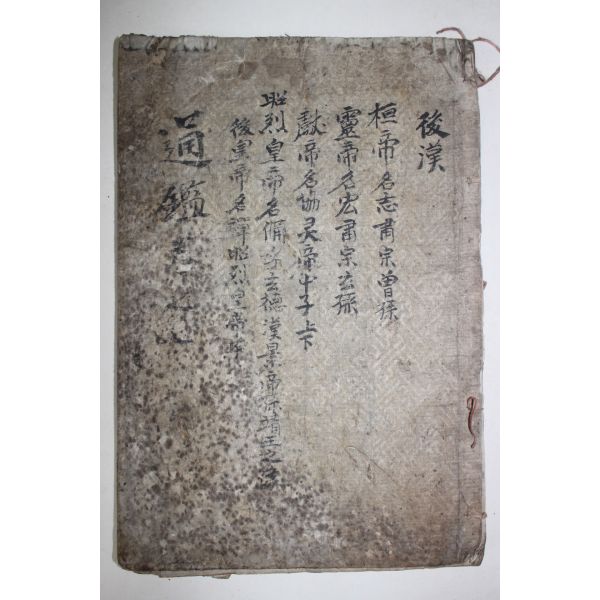 後漢
桓帝名志肅宗曾孫
靈帝名宏肅宗玄孫
獻帝名協灵帝中子上下
昭烈皇帝名備字玄德漢景帝子靖王之後
後皇帝名禪昭烈皇帝子
通鑑